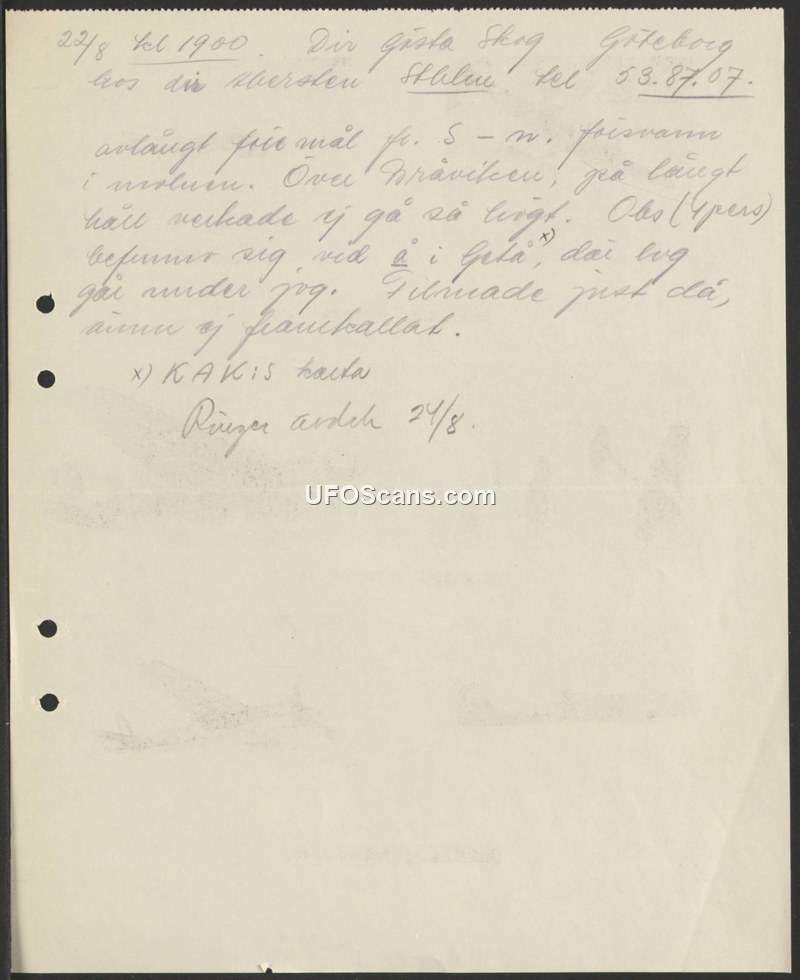 22/8 kl 1900. Dir Gösta Skog Göteborg
hos dir Sthlm tel 53.87.07.
avlångt föremål fr. S – n. försvann
i molnen. Över Bråviken, på långt
håll verkade ej gå så högt. Obs (4 pers)
befunno sig vid å i Getå x), där lvg
går under jvg. Filmade just då,
ännu ej framkallat.
x) KAK:s karta
Ringer 24/8.
UFOScans.com